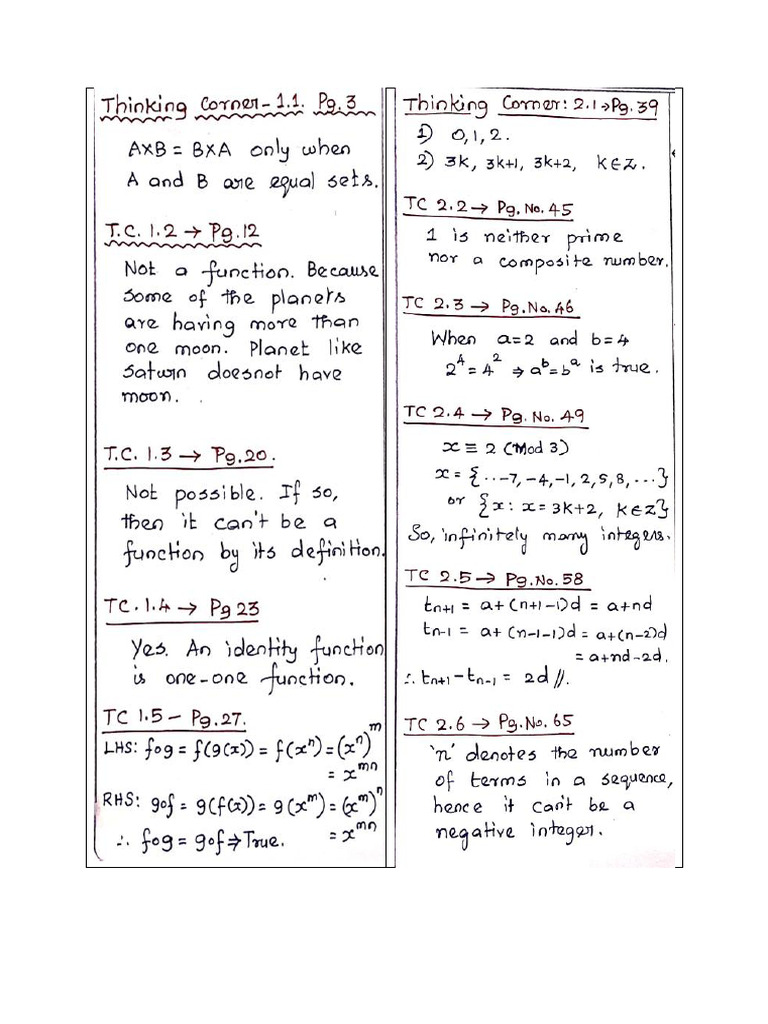 Thinking Corner – 1.1. Pg.3
A×B = B×A only when
A and B are equal sets.
T.C. 1.2 → Pg.12
Not a function. Because
some of the planets
are having more than
one moon. Planet like
saturn doesnot have
moon.
T.C. 1.3 → Pg.20.
Not possible. If so,
then it can't be a
function by its definition.
TC. 1.4 → Pg 23
Yes. An identity function
is one-one function.
TC 1.5 – Pg.27.
LHS: fog = f(g(x)) = f(xⁿ) = (xⁿ)ᵐ
= xᵐⁿ
RHS: gof = g(f(x)) = g(xᵐ) = (xᵐ)ⁿ
= xᵐⁿ
∴ fog = gof ⇒ True.
Thinking Corner: 2.1 → Pg.39
1) 0,1,2.
2) 3k, 3k+1, 3k+2, k∈z.
TC 2.2 → Pg.No.45
1 is neither prime
nor a composite number.
TC 2.3 → Pg.No.46
When a=2 and b=4
2⁴ = 4² ⇒ aᵇ = bᵃ is true.
TC 2.4 → Pg.No.49
x ≡ 2 (Mod 3)
x = {...-7, -4, -1, 2, 5, 8, ...}
or {x : x = 3k+2, k∈z}
So, infinitely many integers.
TC 2.5 → Pg.No.58
tn+1 = a+(n+1-1)d = a+nd
tn-1 = a+(n-1-1)d = a+(n-2)d
= a+nd-2d.
∴ tn+1 - tn-1 = 2d //.
TC 2.6 → Pg.No.65
'n' denotes the number
of terms in a sequence,
hence it can't be a
negative integer.